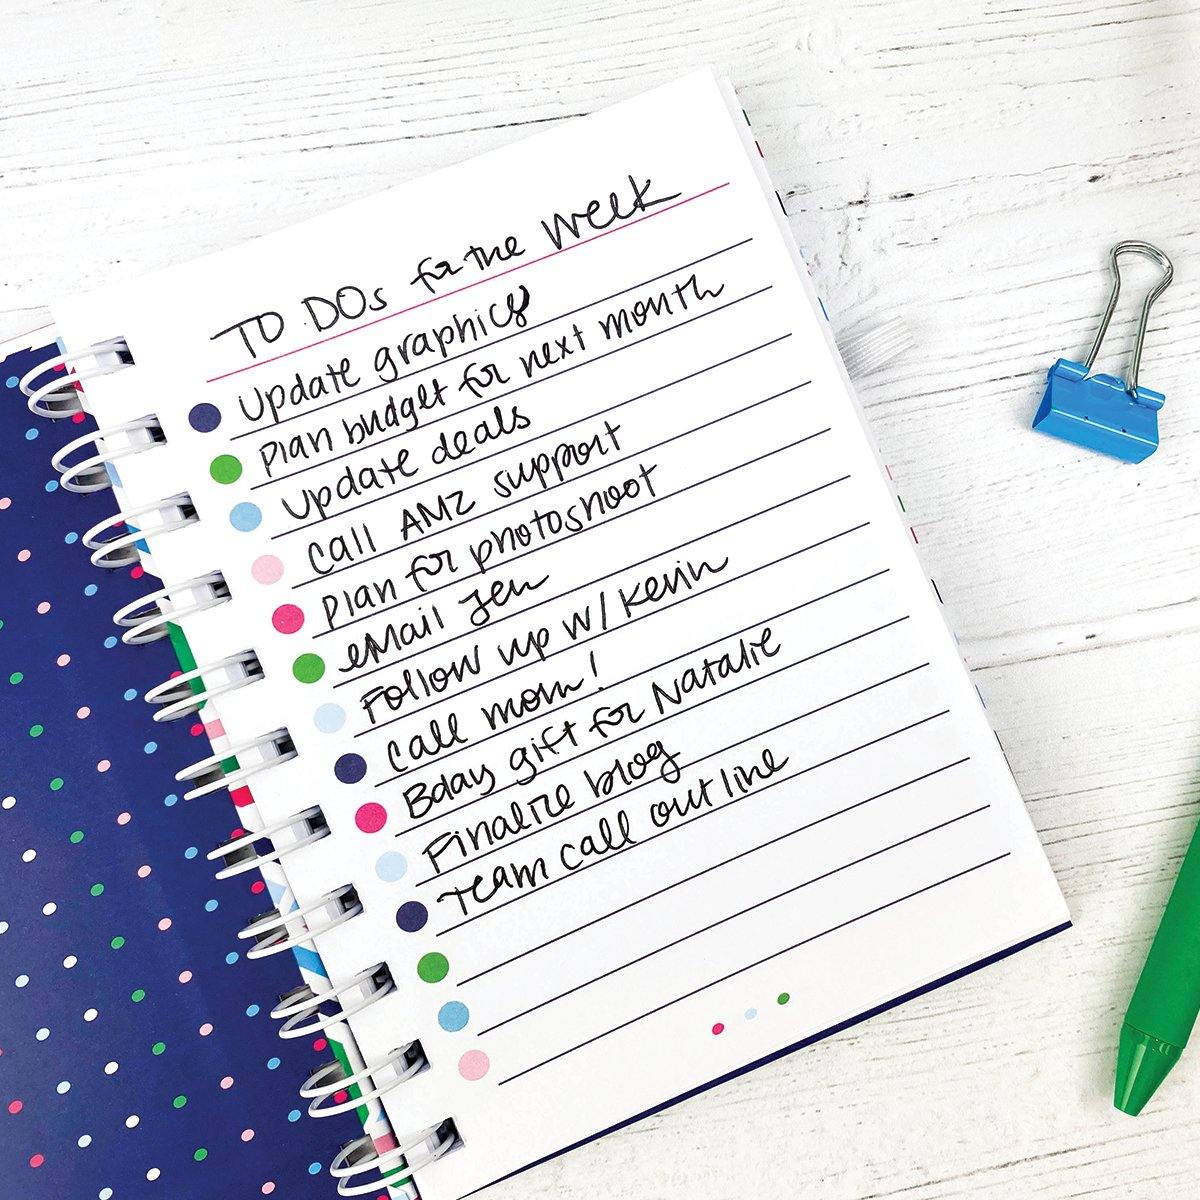 TO DOs for the Week
Update graphics
Plan budget for next month
Update deals
Call AMZ support
Plan for photoshoot
eMail Jen
Follow up w/ Kevin
Call mom!
Bday gift for Natalie
Finalize blog
Team call outline